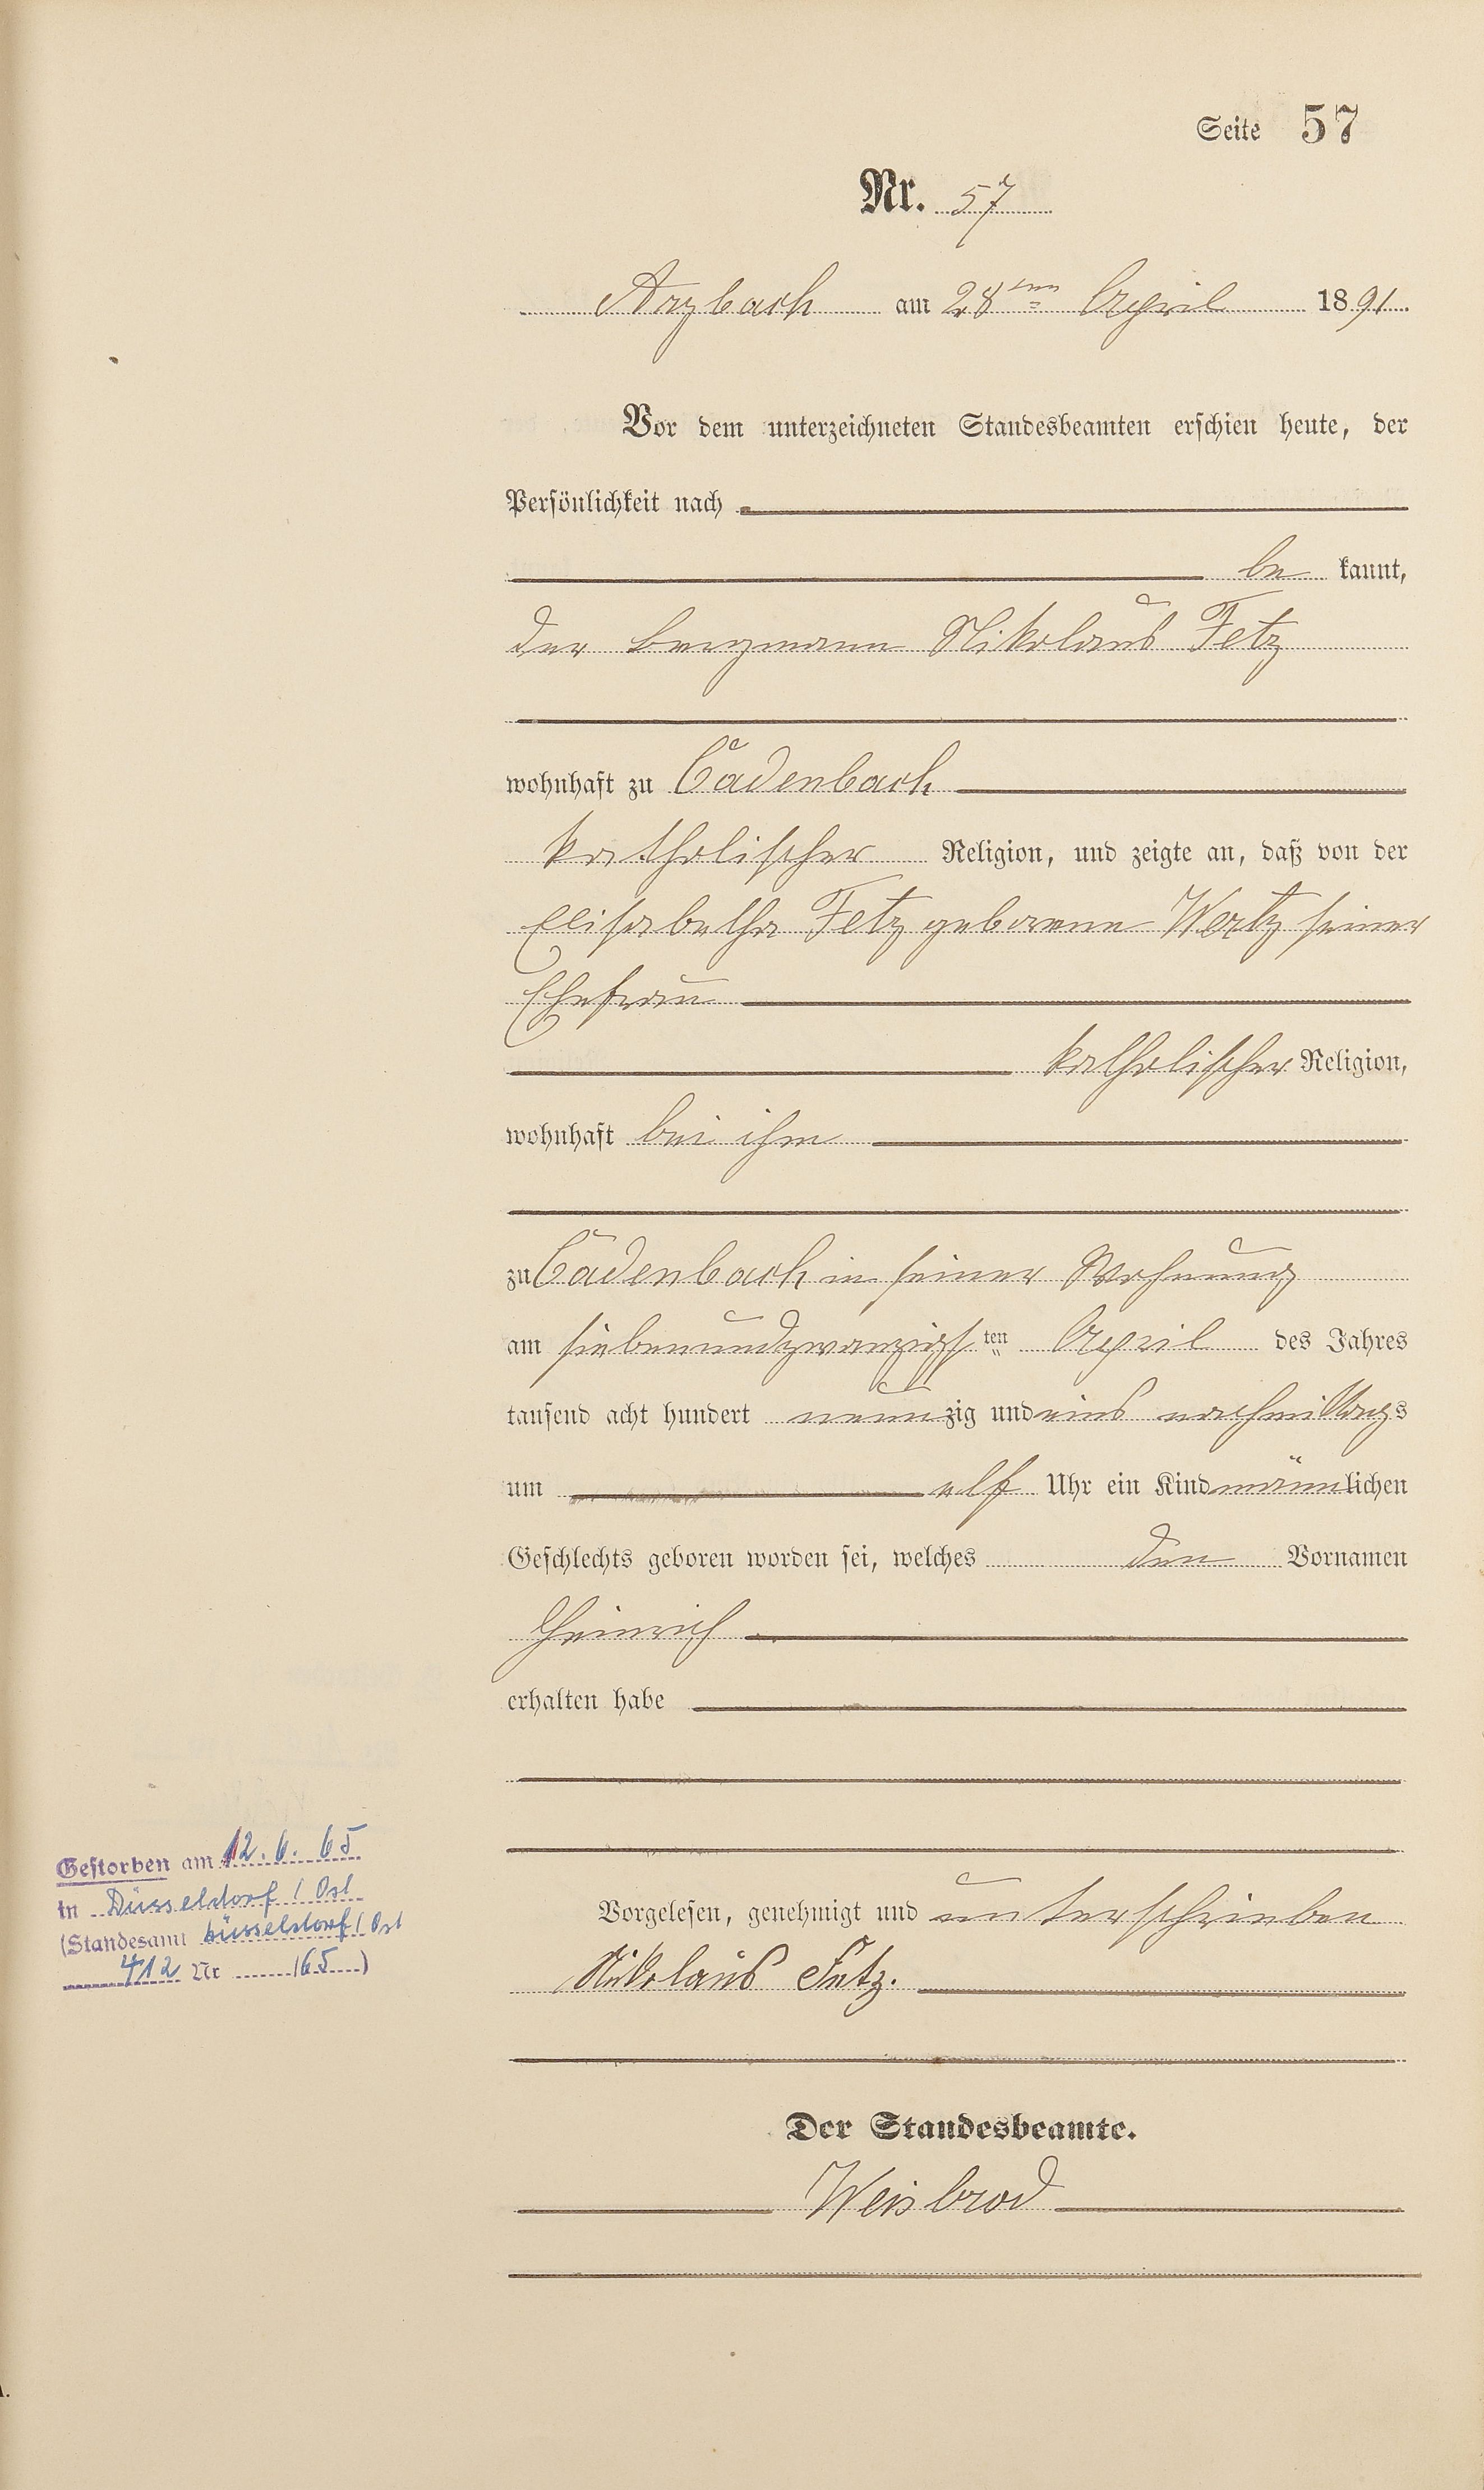 Seite 57
Nr. 57
Arzbach am 28ten April 1891
Vor dem unterzeichneten Standesbeamten erschien heute, der
Persönlichkeit nach
be kannt,
der Bergmann Nikolaus Fetz
wohnhaft zu Cadenbach
katholischer Religion, und zeigte an, daß von der
Elisabetha Fetz geborene Wertz seiner
Ehefrau
katholischer Religion,
wohnhaft bei ihm
zu Cadenbach in seiner Wohnung
am siebenundzwanzigsten April des Jahres
tausend acht hundert neunzig und eins nachmittags
um elf Uhr ein Kind männlichen
Geschlechts geboren worden sei, welches den Vornamen
Heinrich
erhalten habe
Vorgelesen, genehmigt und unterschrieben
Nikolaus Fetz.
Der Standesbeamte.
Weisbrod
Gestorben am 12. 6. 65
in Düsseldorf / Ost
(Standesamt Düsseldorf / Ost
412 Nr /65)